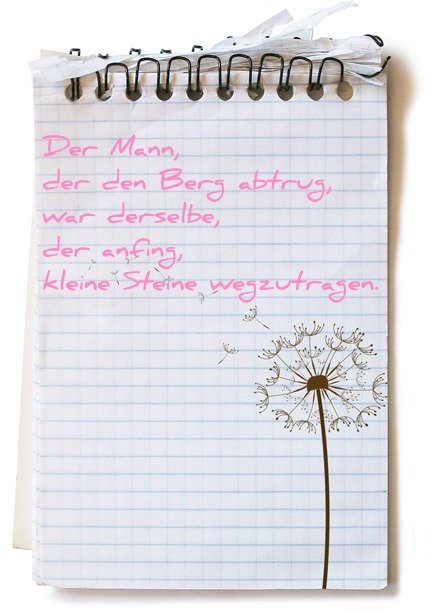 Der Mann,
der den Berg abtrug,
war derselbe,
der anfing,
kleine Steine wegzutragen.